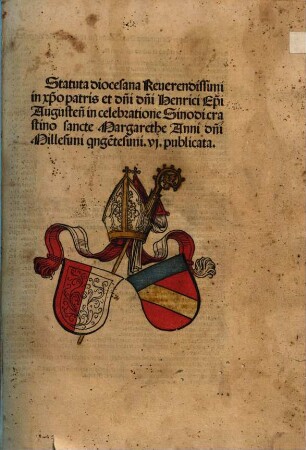 Statuta diocesana Reuerendissimi
in xp̄o patris et dn̄i dn̄i Henrici Ep̄i
Augusten̄ in celebratione Sinodi cra
stino sancte Margarethe Anni dn̄i
Millesimi qngētesimi. vj. publicata.